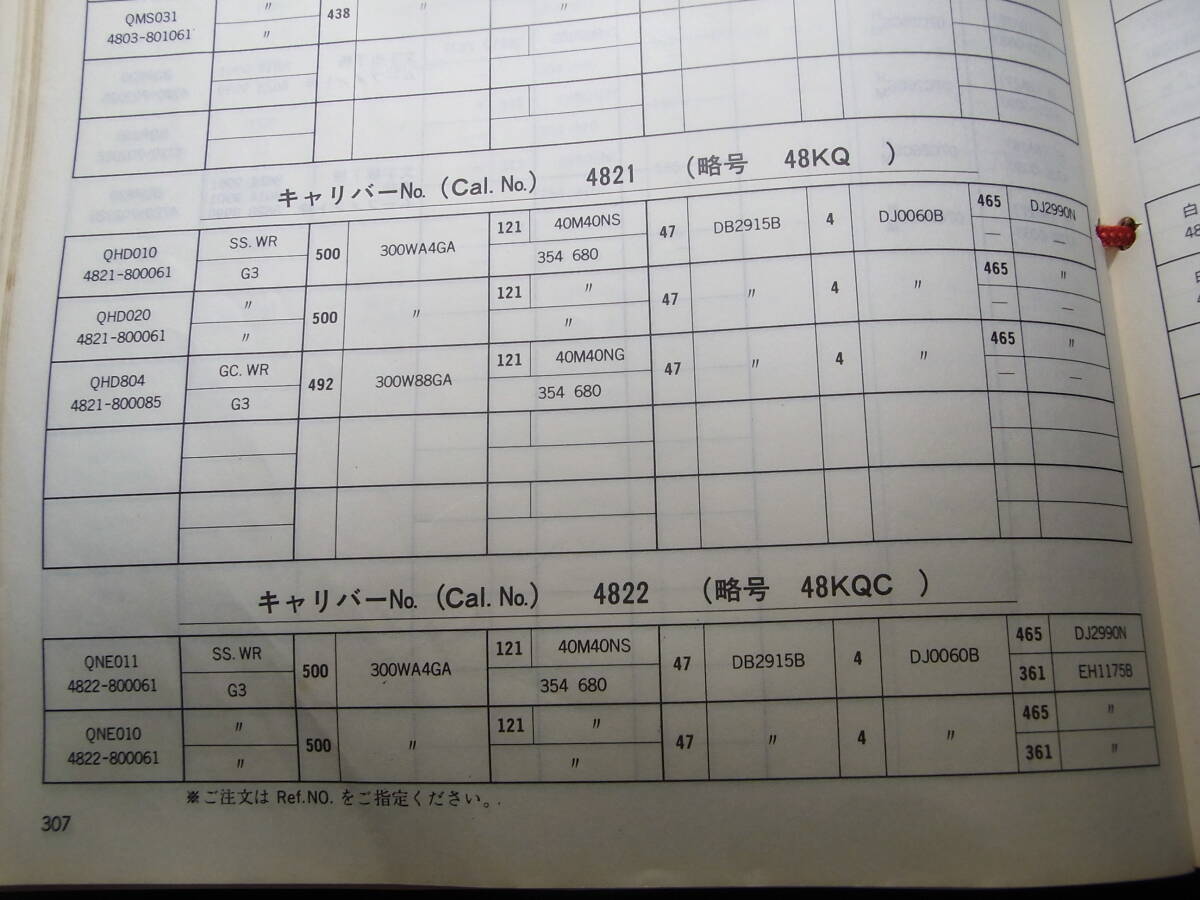 QMS031 〃 438 〃 〃
4803-801061 〃
キャリバーNo. (Cal. No.) 4821 (略号 48KQ )
QHD010 SS. WR 500 300WA4GA 121 40M40NS 47 DB2915B 4 DJ0060B 465 DJ2990N
4821-800061 G3 354 680 — —
QHD020 〃 500 〃 121 〃 47 〃 4 〃 465 〃
4821-800061 〃 〃 — —
QHD804 GC. WR 492 300W88GA 121 40M40NG 47 〃 4 〃 465 〃
4821-800085 G3 354 680 — —
キャリバーNo. (Cal. No.) 4822 (略号 48KQC )
QNE011 SS. WR 500 300WA4GA 121 40M40NS 47 DB2915B 4 DJ0060B 465 DJ2990N
4822-800061 G3 354 680 361 EH1175B
QNE010 〃 500 〃 121 〃 47 〃 4 〃 465 〃
4822-800061 〃 〃 361 〃
※ご注文は Ref.NO. をご指定ください。
307
白
48